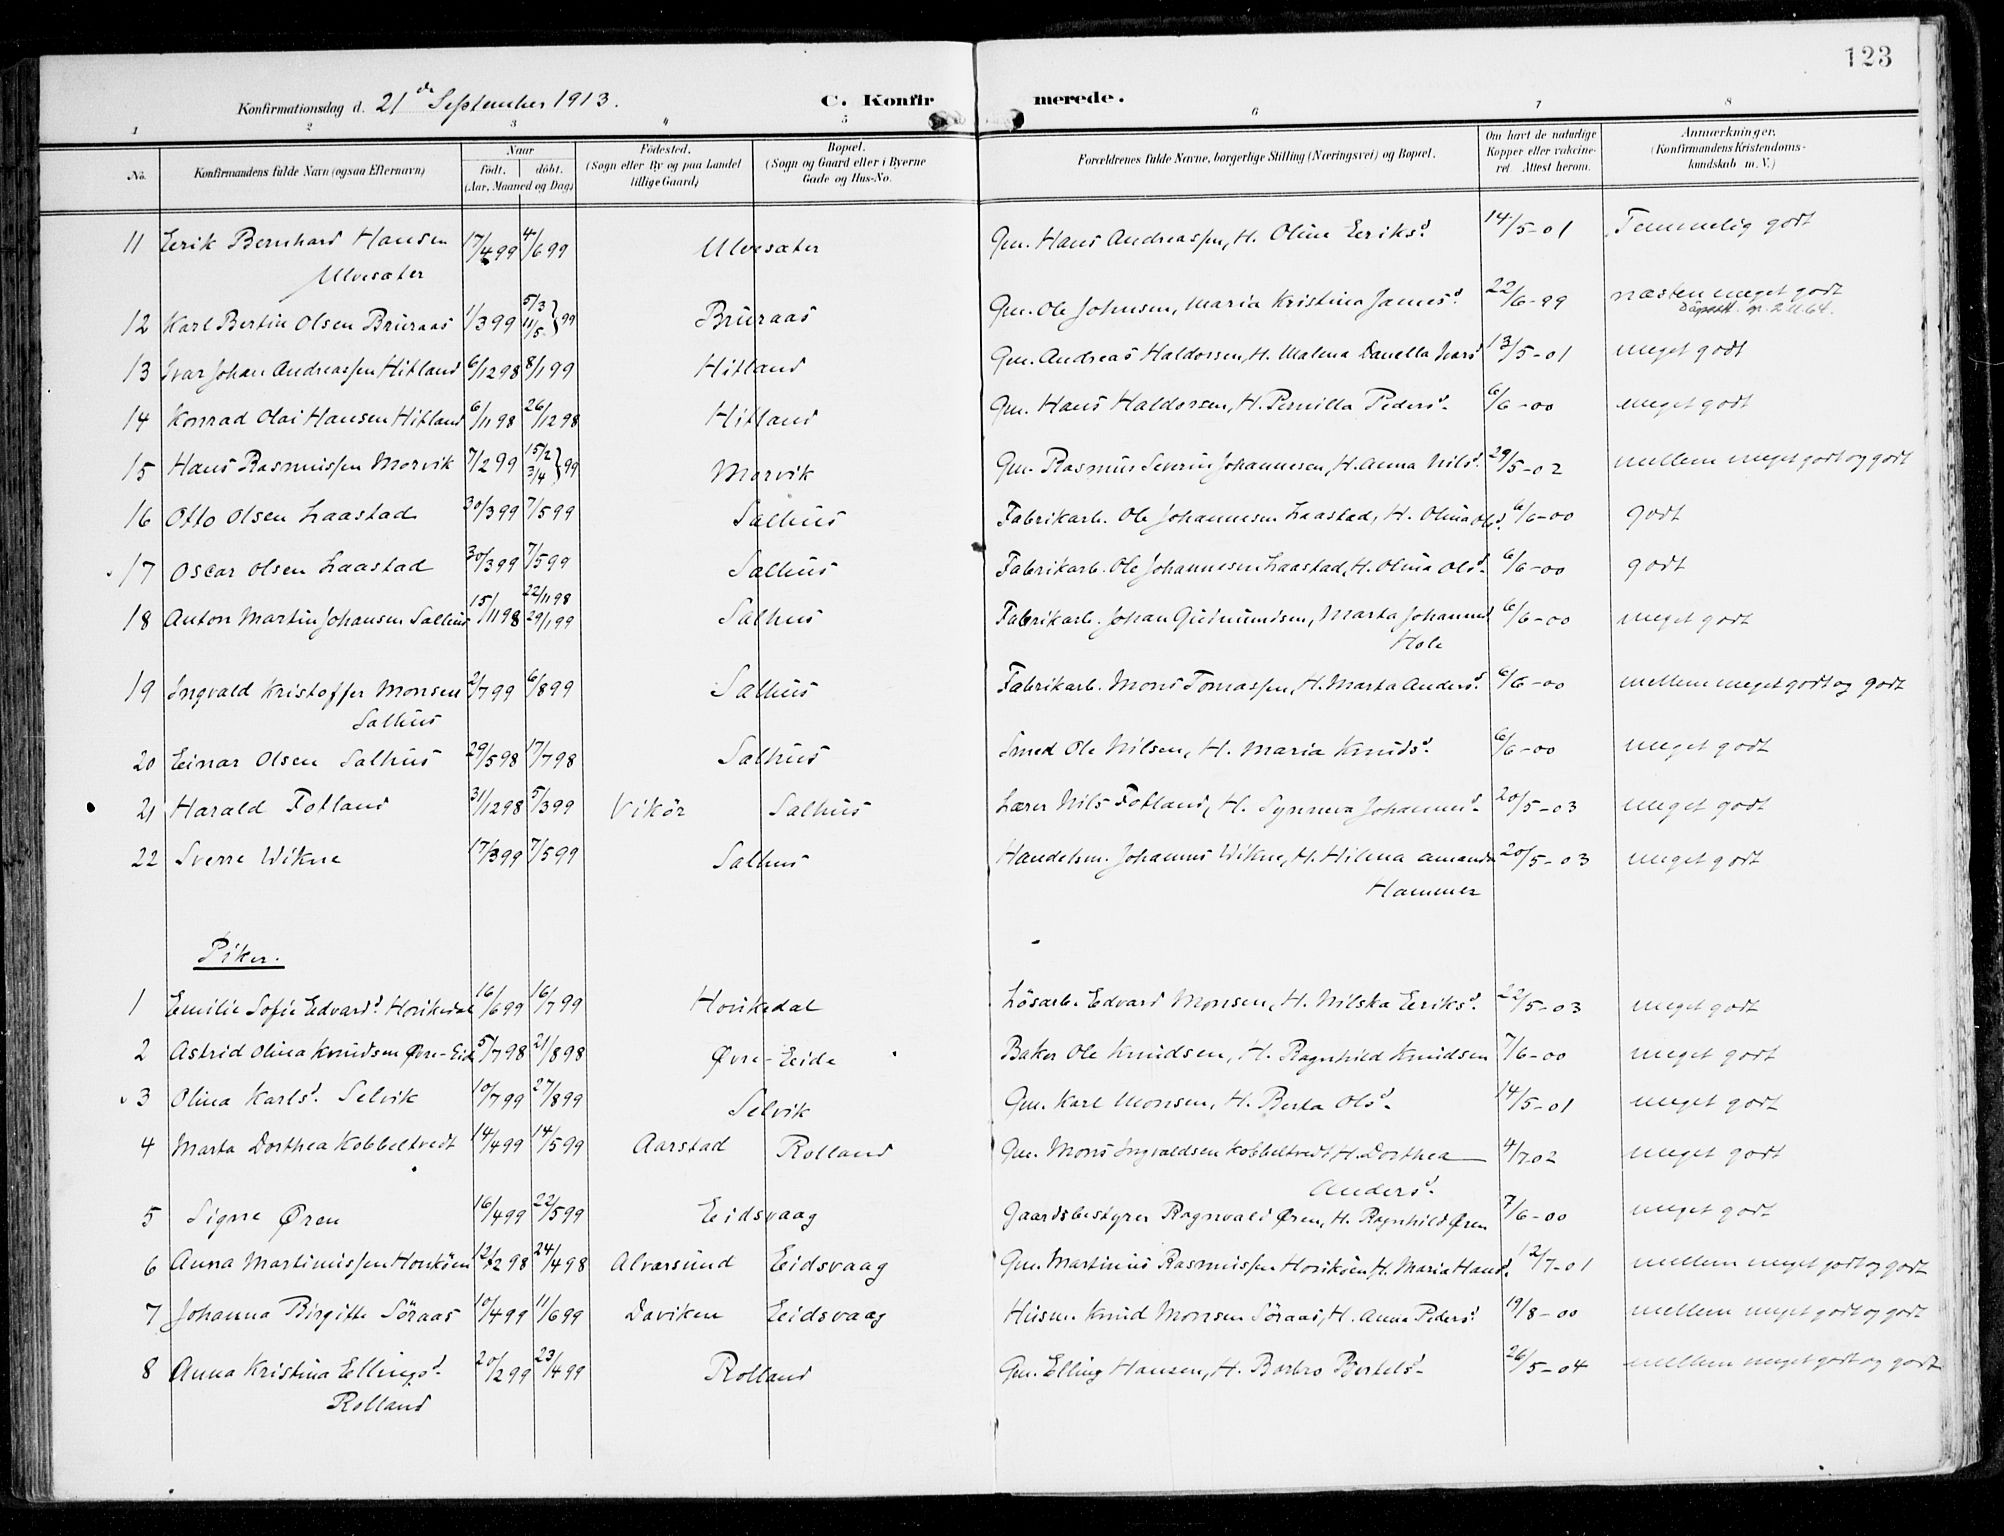 123
Konfirmationsdag d. 21 de September 1913. C. Konfirmerede.
1 2 3 4 5 6 7 8
No. Konfirmandens fulde Navn (ogsaa Efternavn) Naar födt. döbt. (Aar, Maaned og Dag) Födested. (Sogn eller By og paa Landet tillige Gaard) Bopæl. (Sogn og Gaard eller i Byerne Gade og Hus-No. Forældrenes fulde Navne, borgerlige Stilling (Næringsvei) og Bopæl. Om havt de naturlige Kopper eller vakcineret Attest herom. Anmærkninger. (Konfirmandens Kristendomskundskab m. V.)
11 Eerik Bernhard Hansen 17/4 99 4/6 99 Ulvesæter Gm. Hans Andreassen, H. Oline Eeriksd. 14/5-01 Temmelig godt
Ulvesæter
12 Karl Bertin Olsen Bruraas 1/3 99 5/3 11/5 } 99 Bruraas Gm. Ole Johnsen, Maria Kristina Jamesd. 22/6-99 næsten meget godt
13 Ivar Johan Andreassen Hitland 6/12 98 8/1 99 Hitland Gm. Andreas Haldorsen, H. Malena Danella Ivarsd 13/5-01 meget godt
14 Konrad Olai Hansen Hitland 6/11 98 26/12 98 Hitland Gm. Hans Haldorsen, H. Pernilla Peders- 6/6-00 meget godt
15 Hans Rasmussen Morvik 7/2 99 15/2 3/4 } 99 Morvik Gm. Rasmus Severin Johannesen, H. Anna Nilsd. 29/5-02 mellem meget godt og godt
16 Otto Olsen Laastad 30/3 99 7/5 99 Salhus Fabrikarb. Ole Johannesen Laastad, H. Olina Olsd. 6/6-00 godt
17 Oscar Olsen Laastad 30/3 99 7/5 99 Salhus Fabrikarb. Ole Johannesen Laastad, H. Olina Olsd. 6/6-00 godt
18 Anton Martin Johansen Salhus 15/11 98 22/11 98 29/1 99 Salhus Fabrikarb. Johan Gudmundsen, Marta Johannesd 6/6-00 meget godt
Hole
19 Ingvald Kristoffer Monsen 2/7 99 6/8 99 Salhus Fabrikarb. Mons Tomassen, H. Marta Andersd. 6/6-00 mellem meget godt og godt
Salhus
20 Einar Olsen Salhus 29/5 98 17/7 98 Salhus Smed Ole Nilsen, H. Maria Knudsd. 6/6-00 meget godt
21 Harald Fotland 31/12 98 5/3 99 Vikör Salhus Lærer Nils Fotland, H. Synneva Johannesd. 20/5-03 meget godt
22 Sverre Wikne 17/3 99 7/5 99 Salhus Handelsm. Johannes Wikne, H. Hilma Amanda 20/5-03 meget godt
Hammer
Piker.
1 Emilie Sofie Edvardsd. Hovikedal 16/6 99 16/7 99 Hovikedal Lösarb. Edvard Monsen, H. Nilska Eeriksd. 22/5-03 meget godt
2 Astrid Olina Knudsen Øvre-Eide 5/7 98 21/8 98 Øvre-Eide Baker Ole Knudsen, H. Ragnhild Knudsen 7/6-00 meget godt
3 Olina Karlsd. Selvik 10/7 99 27/8 99 Selvik Gm. Karl Monsen, H. Berta Olsd. 14/5-01 meget godt
4 Marta Dorthea Kobbeltvedt 14/4 99 14/5 99 Aarstad Rolland Gm. Mons Ingvaldsen Kobbeltvedt, H. Dorthea 4/7 02 meget godt
Andersd.
5 Signe Øren 16/4 99 22/5 99 Eidsvaag Gaardsbestyrer Ragnvald Øren, H. Ragnhild Øren 7/6-00 meget godt
6 Anna Martinussen Honköien 12/2 98 24/4 98 Alversund Eidsvaag Gm. Martinus Rasmussen Horiköen, H. Maria Hansd. 12/7-01 mellem meget godt og godt
7 Johanna Birgitte Söraas 10/4 99 11/6 99 Daviken Eidsvaag Husm. Knud Monsen Söraas, H. Anna Pedersd. 19/8-00 mellem meget godt og godt
8 Anna Kristina Ellingsd. 20/2 99 23/4 99 Rolland Gm. Elling Hansen, H. Barbro Bertelsd. 26/5-04 mellem meget godt og godt
Rolland